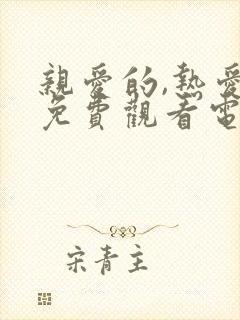 親愛的,熱愛
免費觀看電
宋青主